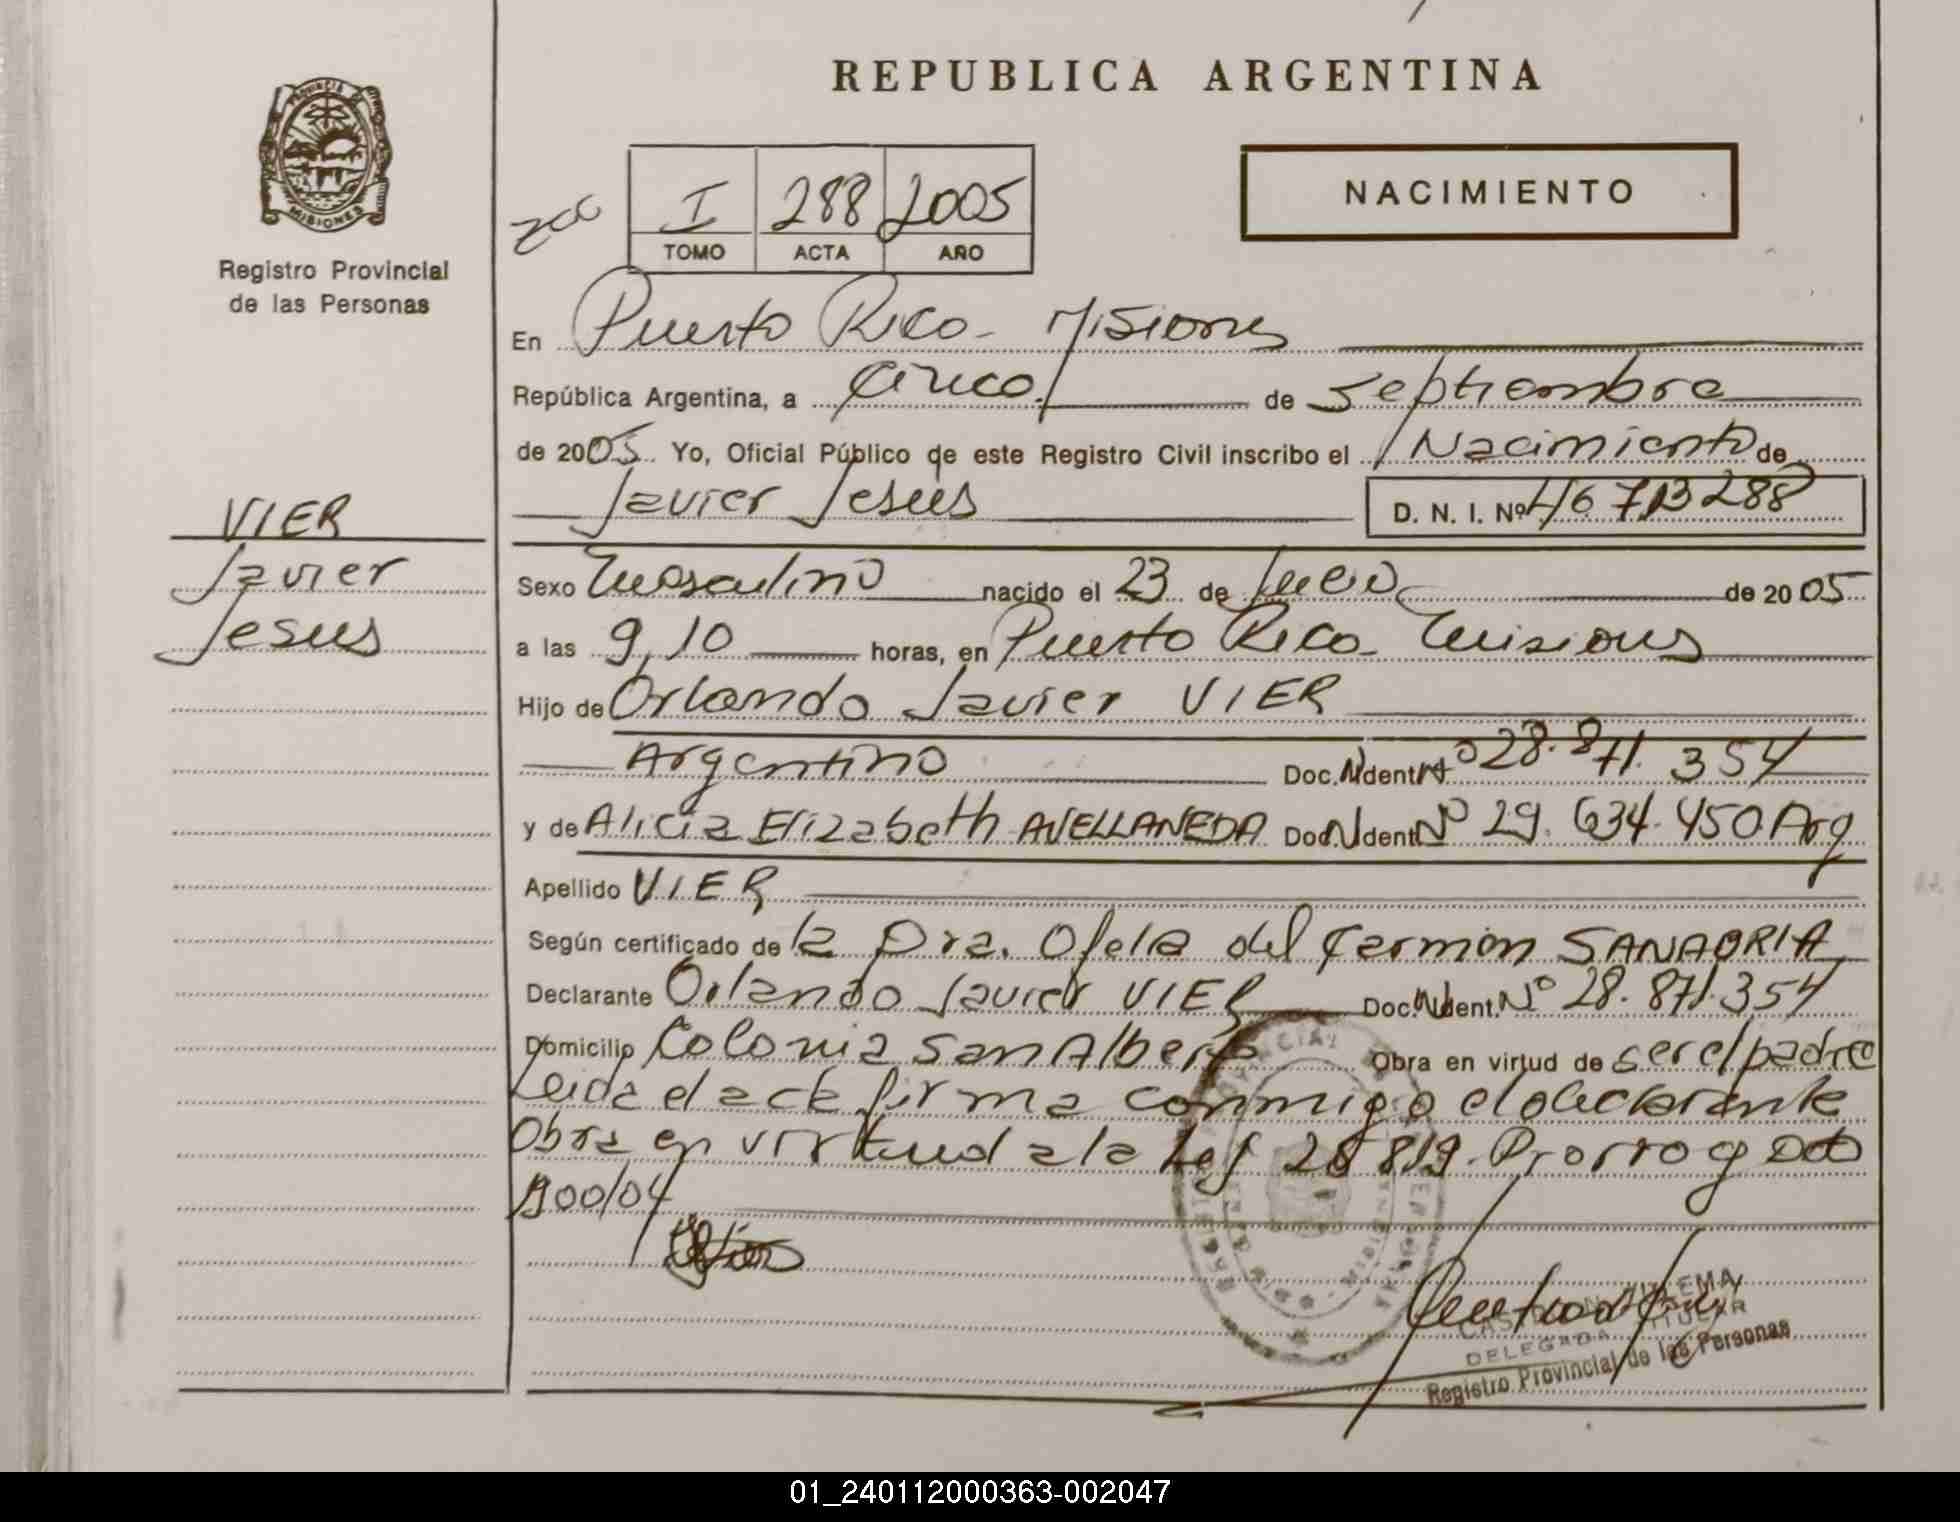 REPUBLICA ARGENTINA
PROVINCIA DE
MISIONES
Registro Provincial
de las Personas
I 288 2005
TOMO ACTA AÑO
NACIMIENTO
En Puerto Rico - Misiones
República Argentina, a Cinco. de Septiembre
de 2005 Yo, Oficial Público de este Registro Civil inscribo el Nacimiento de
Javier Jesus D. N. I. Nº 46 713 288
VIER
Javier
Jesus
Sexo Masculino nacido el 23 de Julio de 2005
a las 9,10 horas, en Puerto Rico - Misiones
Hijo de Orlando Javier VIER
Argentino Doc. Ident. Nº 28.871.354
y de Alicia Elizabeth AVELLANEDA Doc. Ident. Nº 29.634.450 Arg
Apellido VIER
Según certificado de la Dra. Ofelia del Carmen SANABRIA
Declarante Orlando Javier VIER Doc. Ident. Nº 28.871.354
Domicilio Colonia San Alberto Obra en virtud de ser el padre
Leida el acta firma conmigo el declarante
Obra en virtud a la Ley 25 819. Prorrog Dto
900/04
DELEGADA TITULAR
Registro Provincial de las Personas
01_240112000363-002047